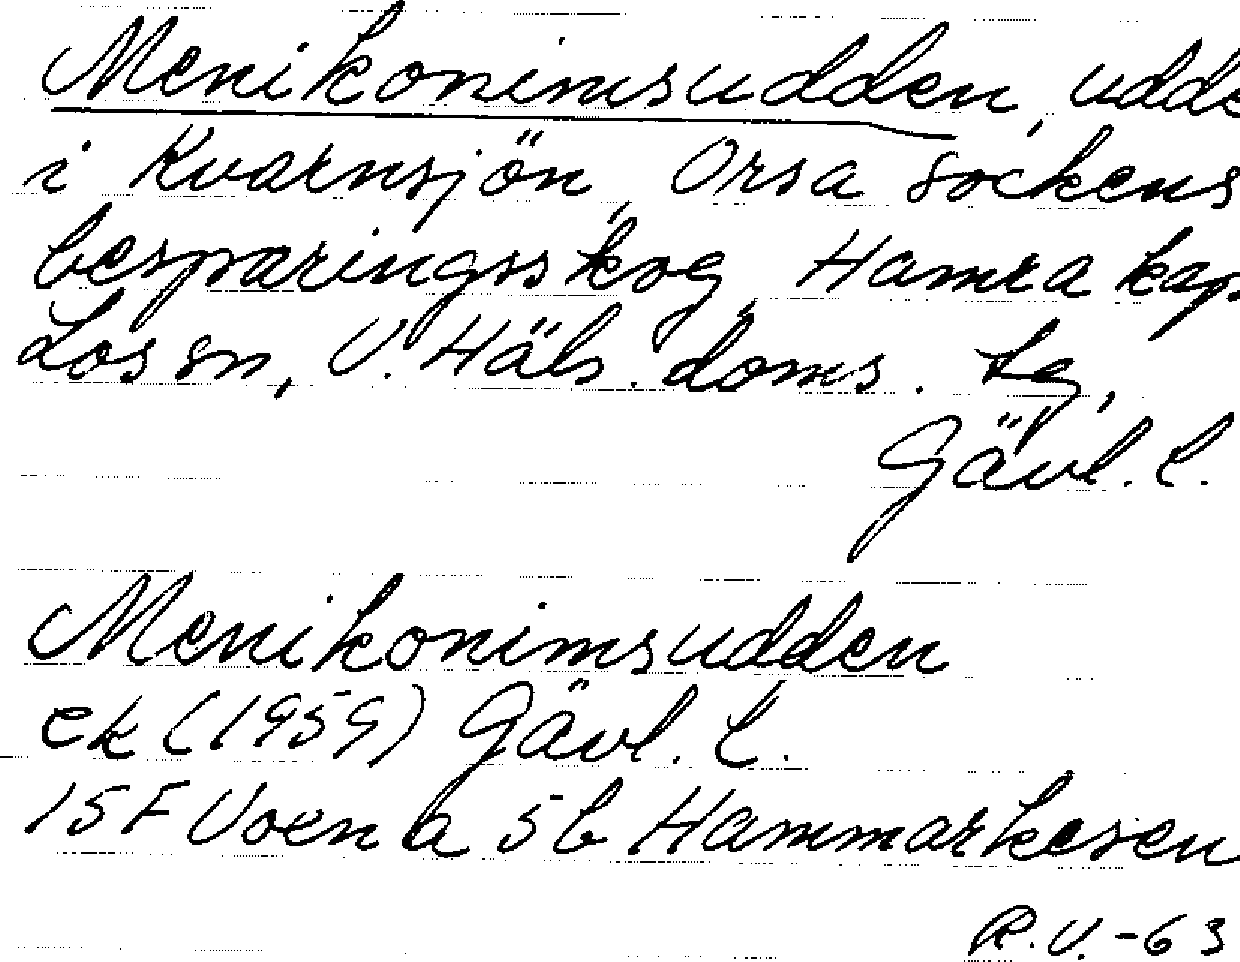 Menikonimsudden, udde
i Kvarnsjön, Orsa sockens
besparingsskog, Hamra kap
Los sn, V. Häls. doms. tg,
Gävl. l.
Menikonimsudden
ek (1959) Gävl. l.
15 F Voxna 5b Hammarkesen
R.V.-63